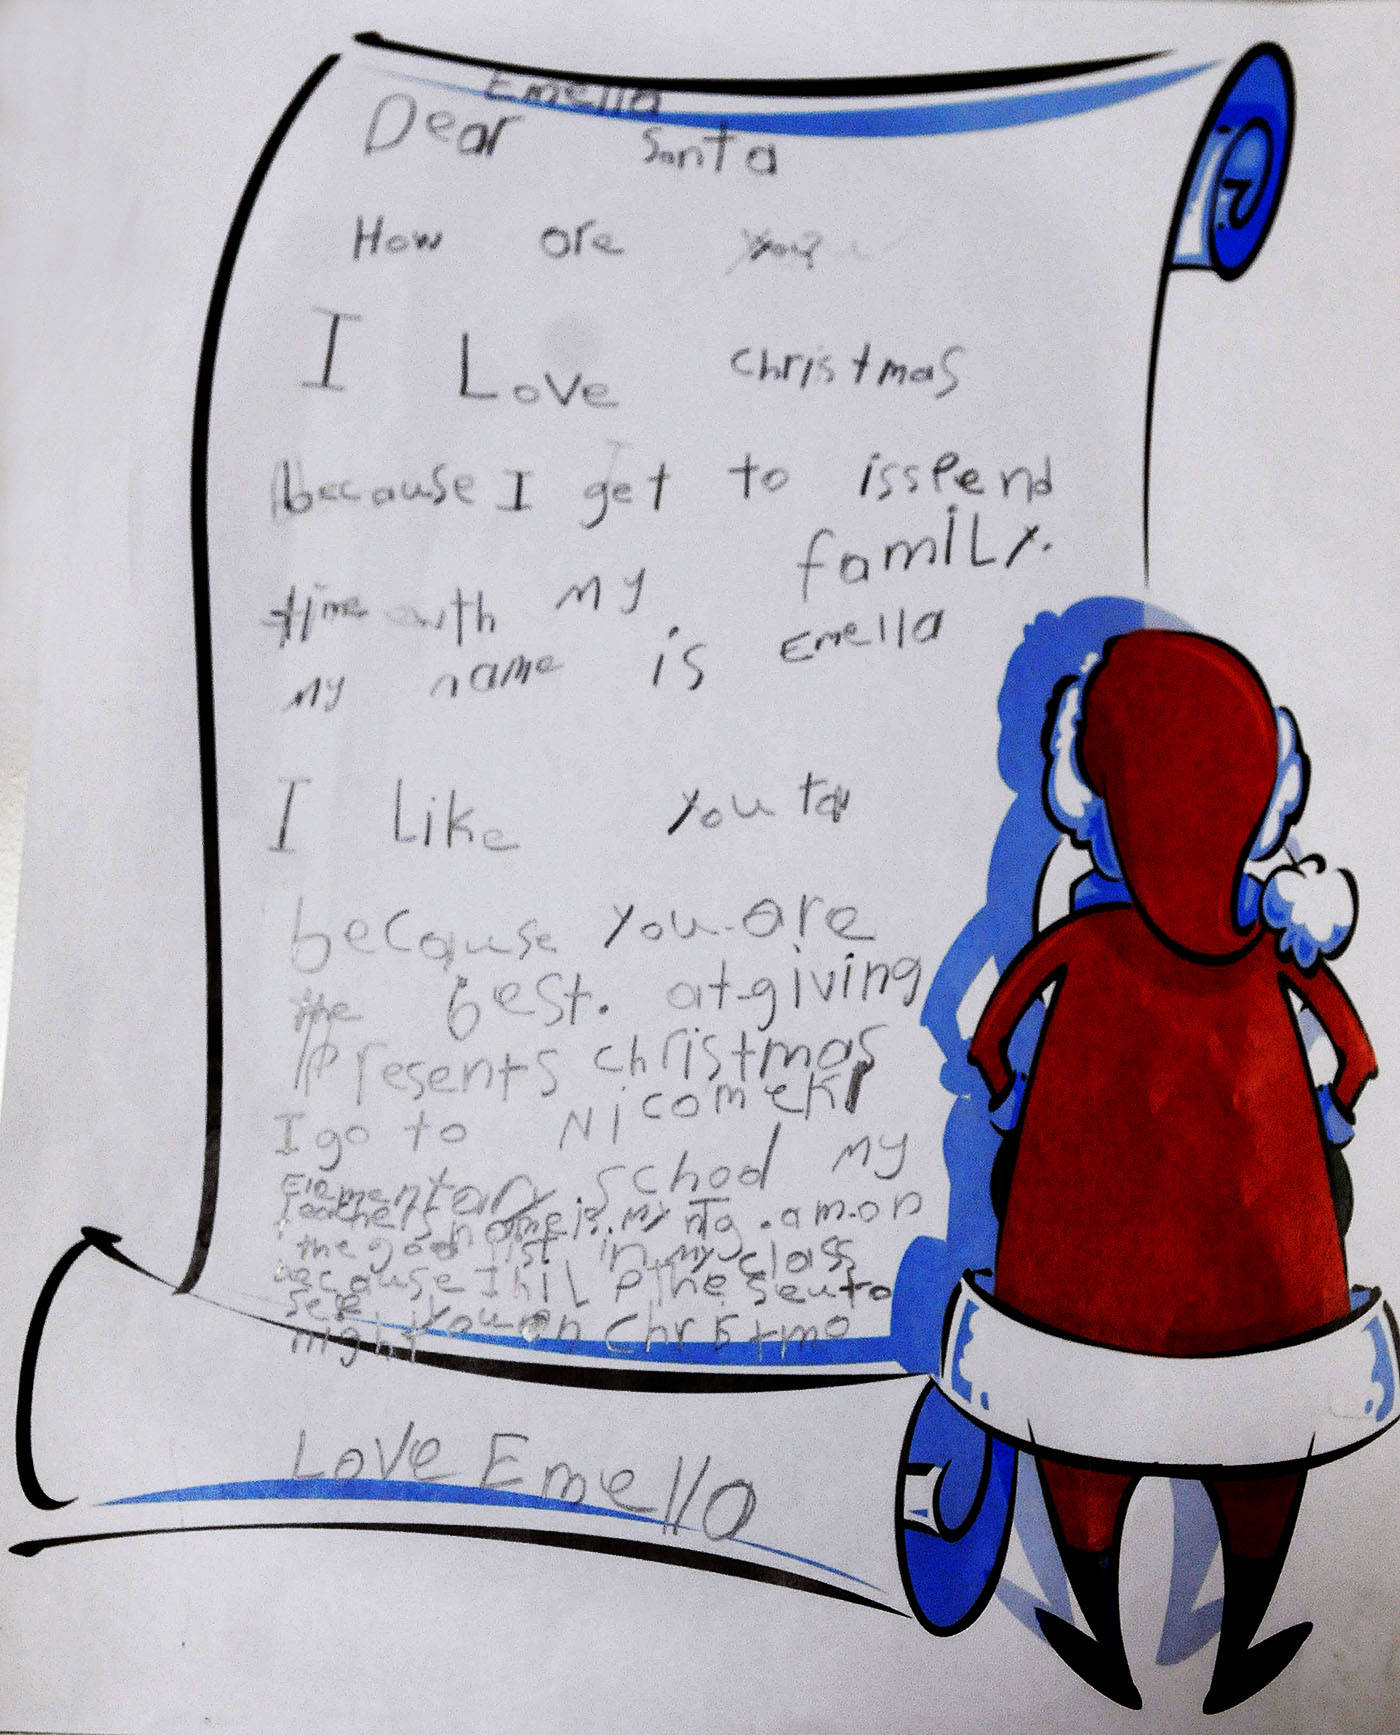 Emella
Dear Santa
How are you
I Love christmas
because I get to isspend
family.
time with my
my name is Emella
I Like you
because you are
the best. at giving
Presents christmas
I go to Nicomekl
Elementary school my
teachers name is. my ng . am on
the good list in my class
because I hilp
see you on Christma
night
Love Emella